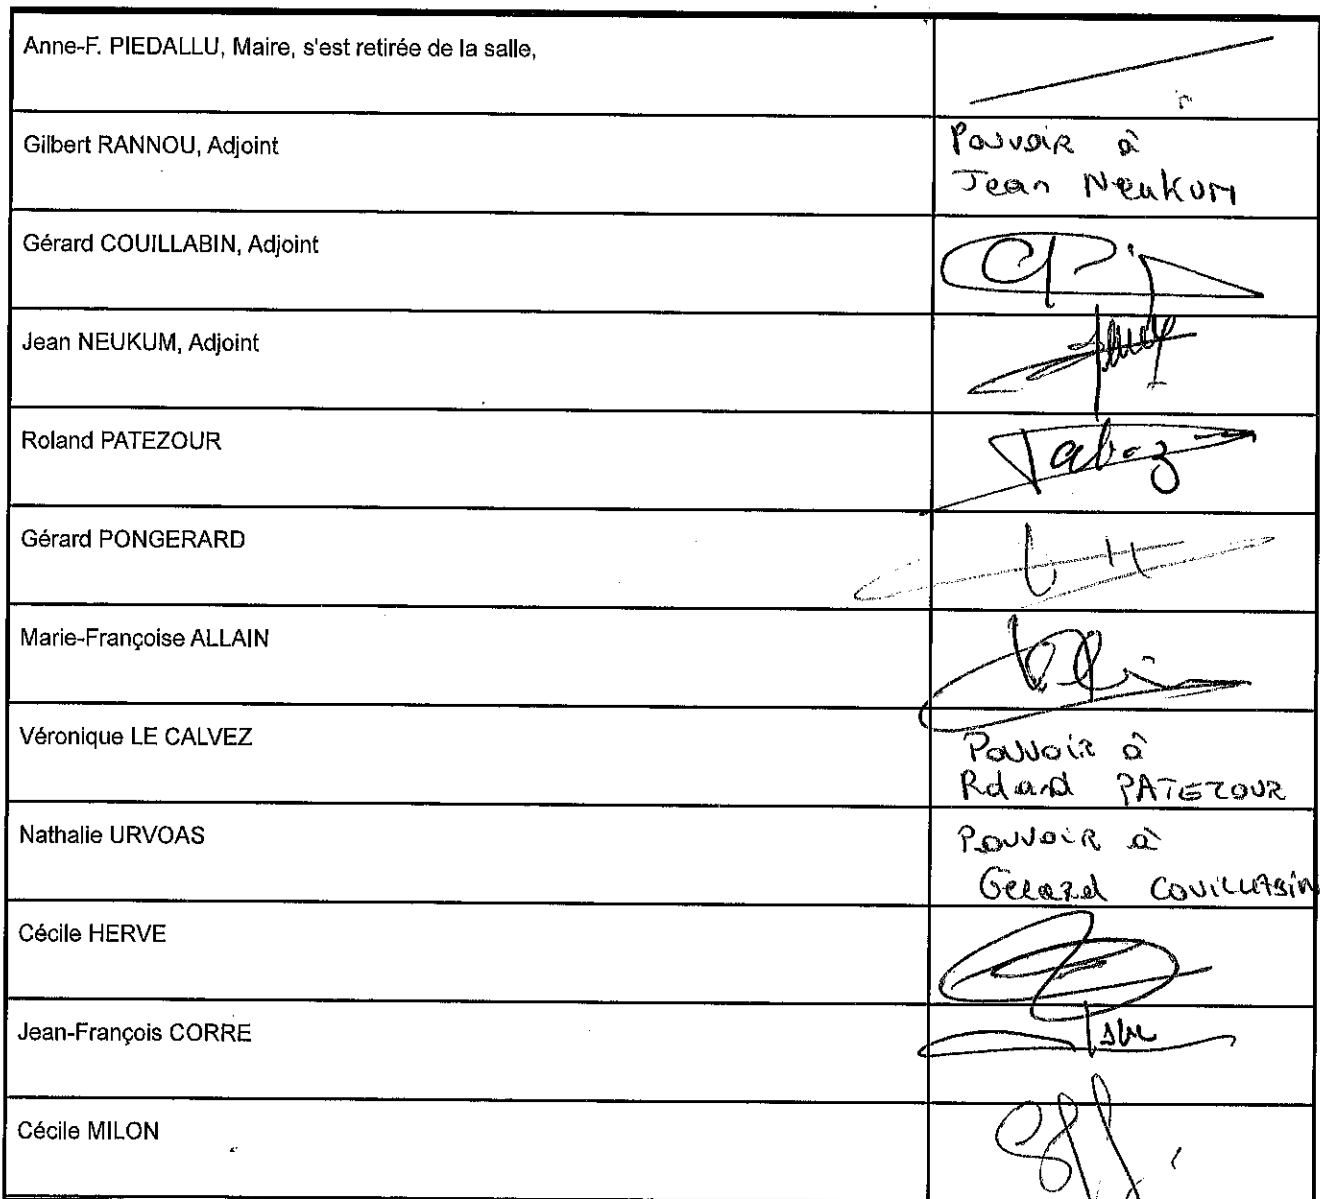 Anne-F. PIEDALLU, Maire, s'est retirée de la salle,
Gilbert RANNOU, Adjoint
Pouvoir à
Jean NeukuM
Gérard COUILLABIN, Adjoint
Jean NEUKUM, Adjoint
Roland PATEZOUR
Gérard PONGERARD
Marie-Françoise ALLAIN
Véronique LE CALVEZ
Pouvoir à
Roland PATEZOUR
Nathalie URVOAS
Pouvoir à
Gérard COUILLABIN
Cécile HERVE
Jean-François CORRE
Cécile MILON